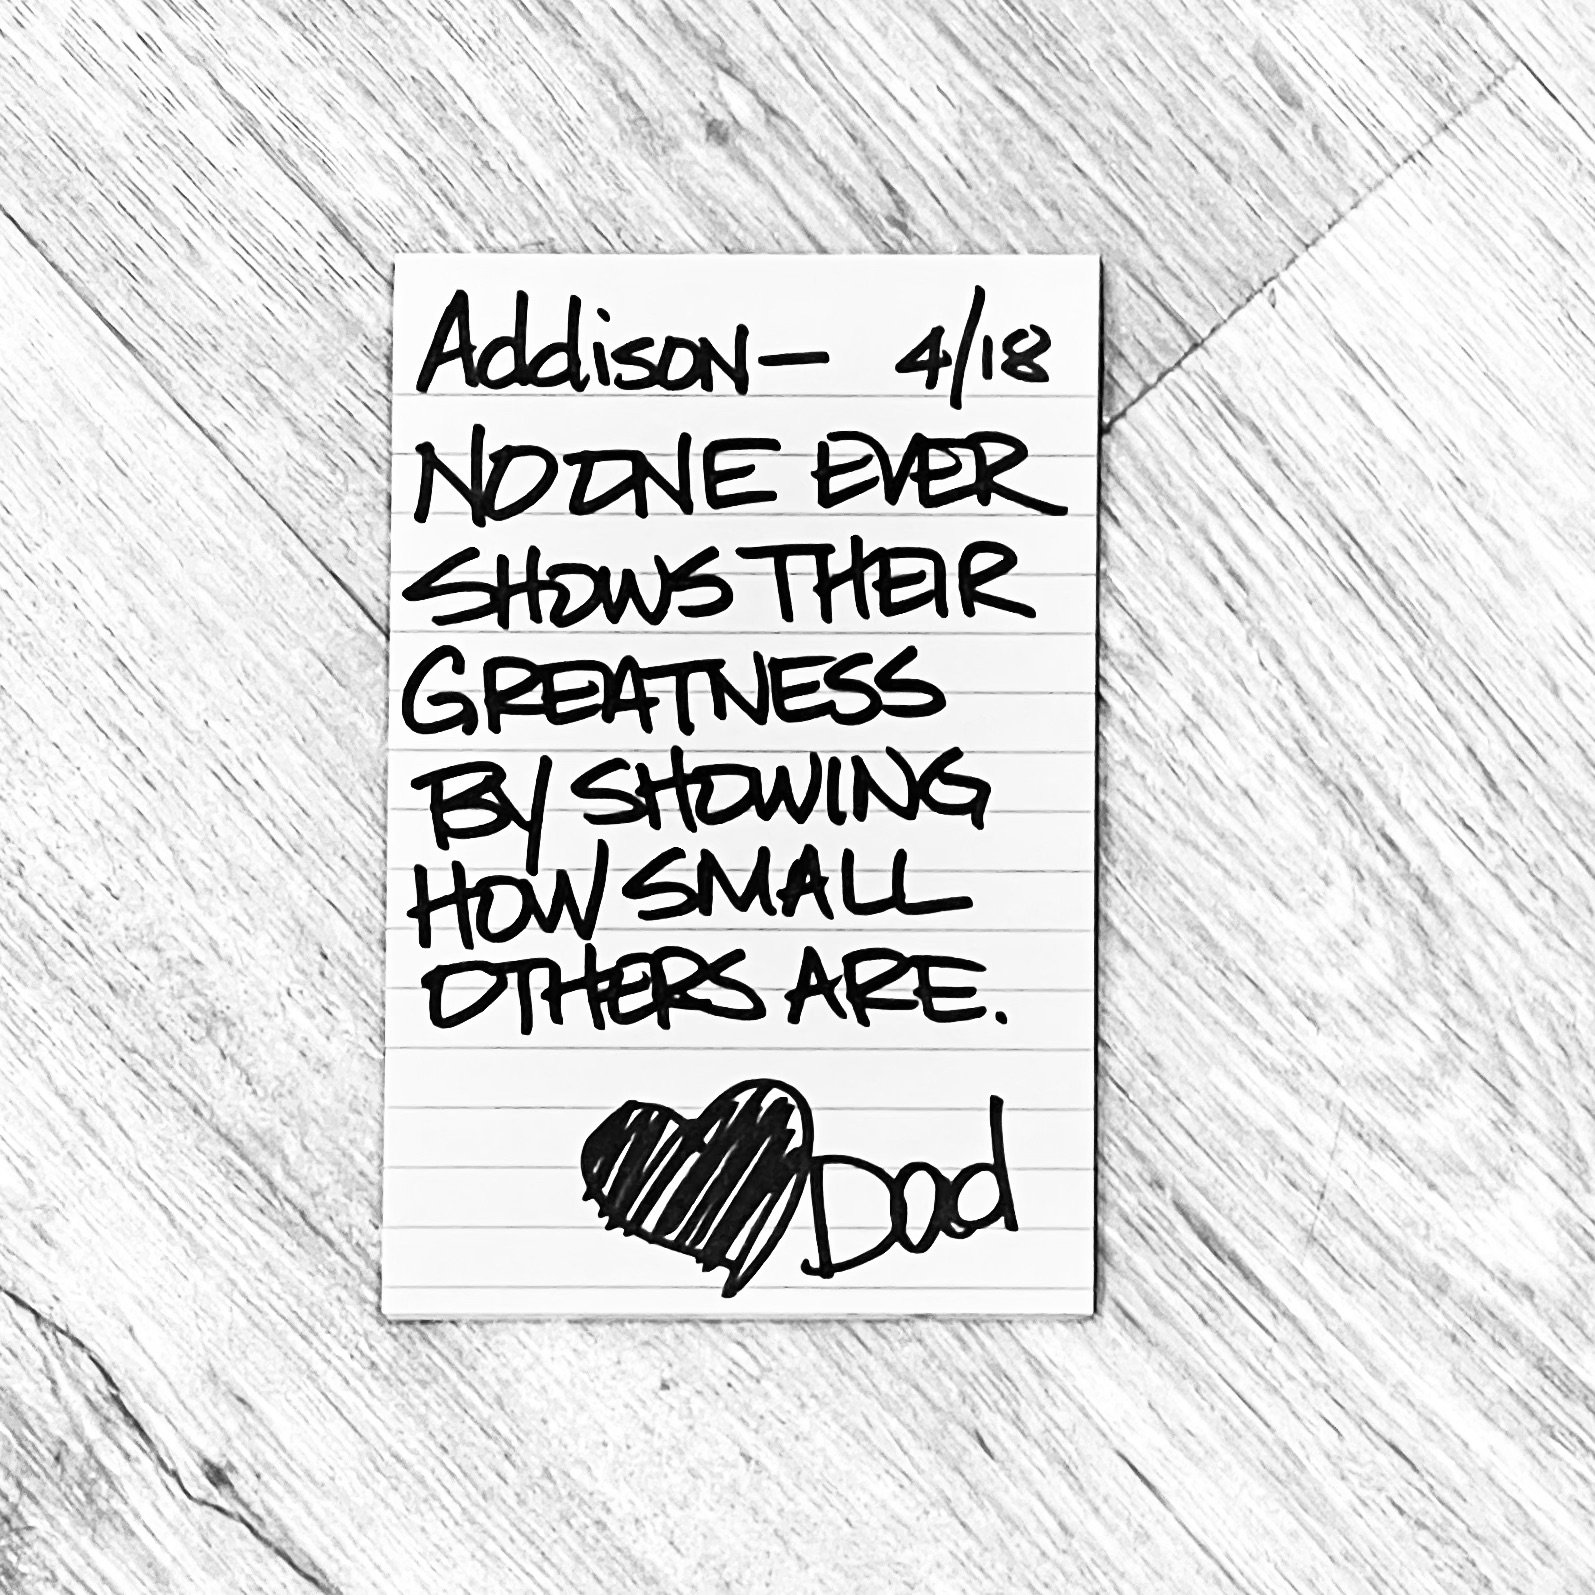 Addison— 4/18
NO ONE EVER
SHOWS THEIR
GREATNESS
BY SHOWING
HOW SMALL
OTHERS ARE.
Dad